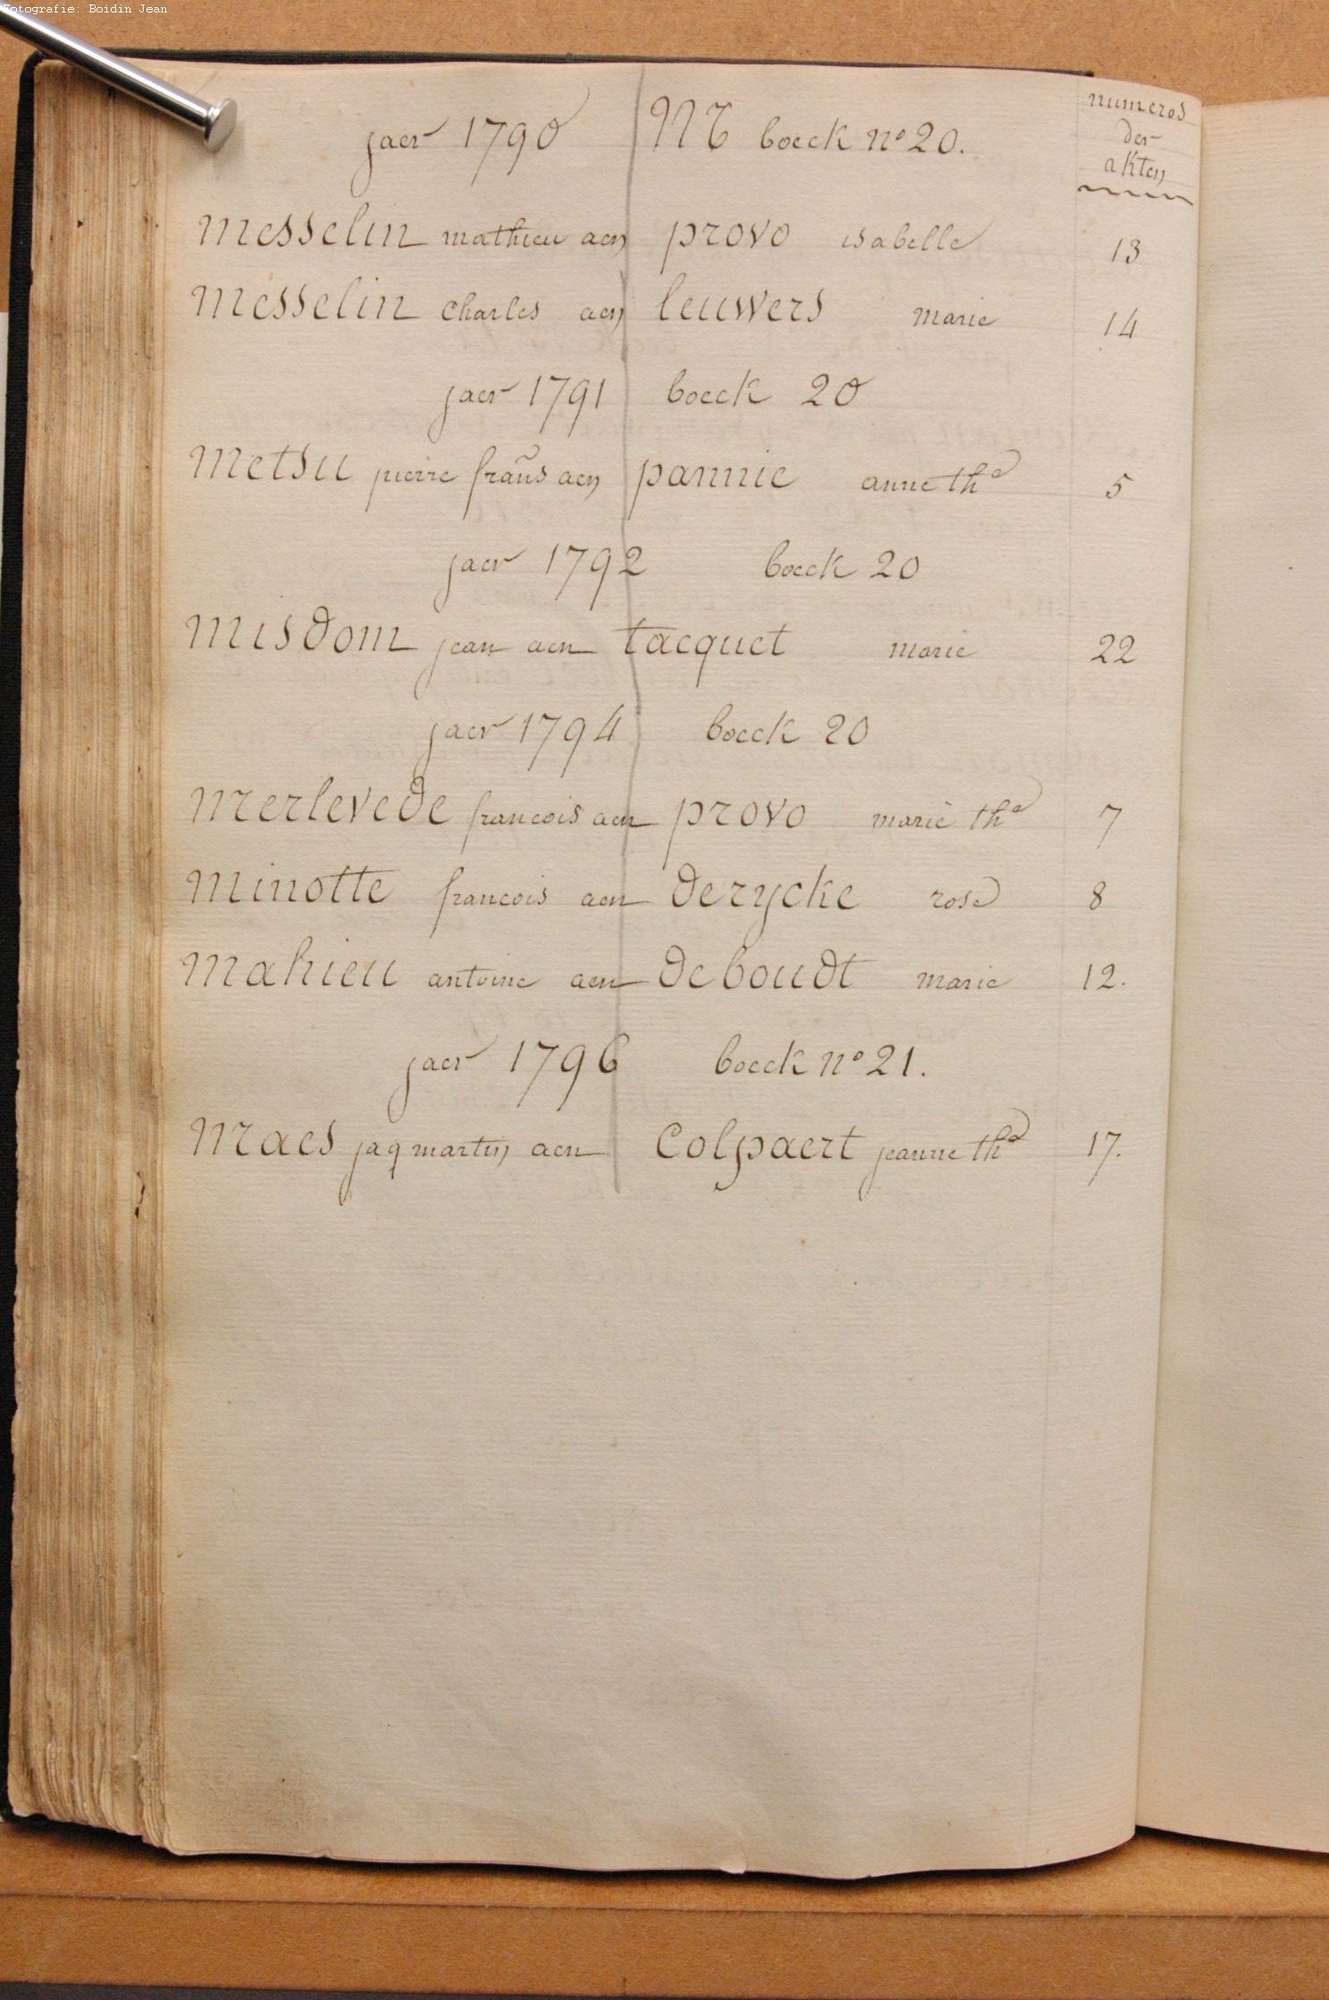 Fotografie: Boidin Jean
jaer 1790 M boeck n° 20.
numeros
der
akten
messelin mathieu aen provo isabelle 13
messelin charles aen leuwers marie 14
jaer 1791 boeck 20
metsu pierre frans aen pannie anne th^e 5
jaer 1792 boeck 20
misdom jean aen tacquet marie 22
jaer 1794 boeck 20
merlevede francois aen provo marie th^e 7
minotte francois aen derycke rose 8
mahieu antoine aen deboudt marie 12.
jaer 1796 boeck n° 21.
maes jaq martin aen Colpaert jeanne th^e 17.